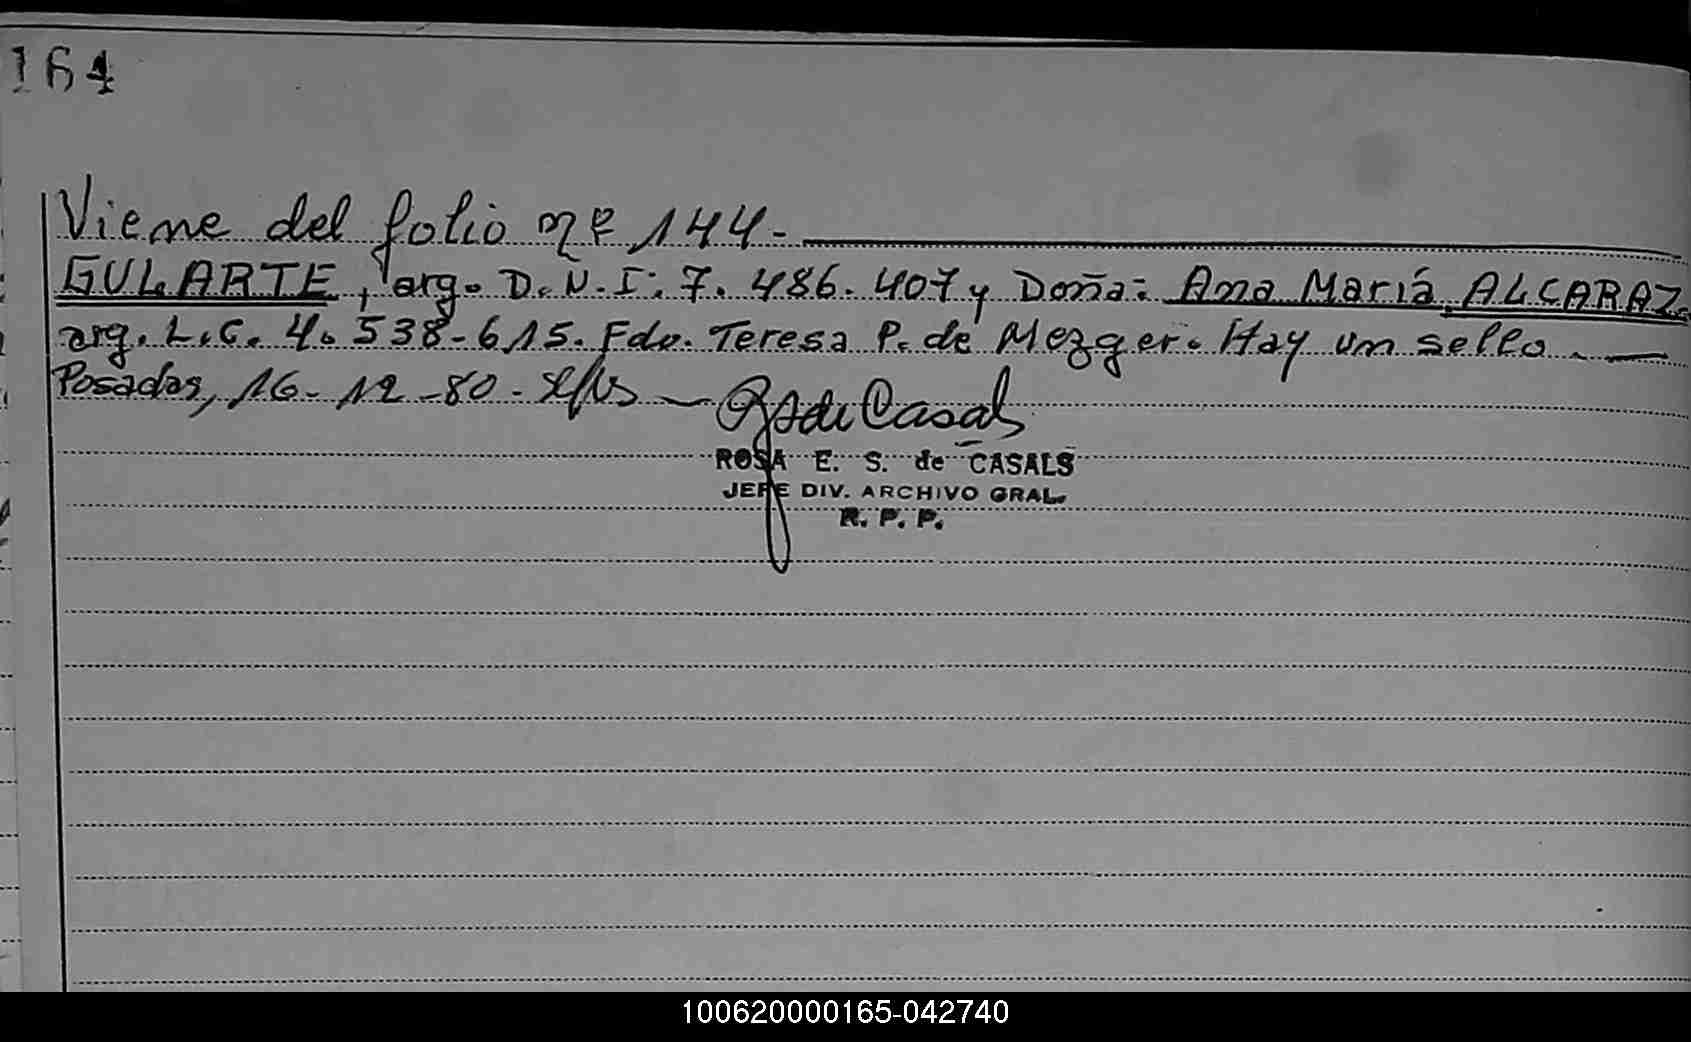 164
Viene del folio nº 144.-
GULARTE, arg. D.N.I: 7.486.407 y Doña: Ana María ALCARAZ
arg. L.C. 4.538-615. Fdo. Teresa P. de Mezger. Hay un sello.-
Posadas, 16-12-80-
ROSA E. S. de CASALS
JEFE DIV. ARCHIVO GRAL.
R. P. P.
100620000165-042740